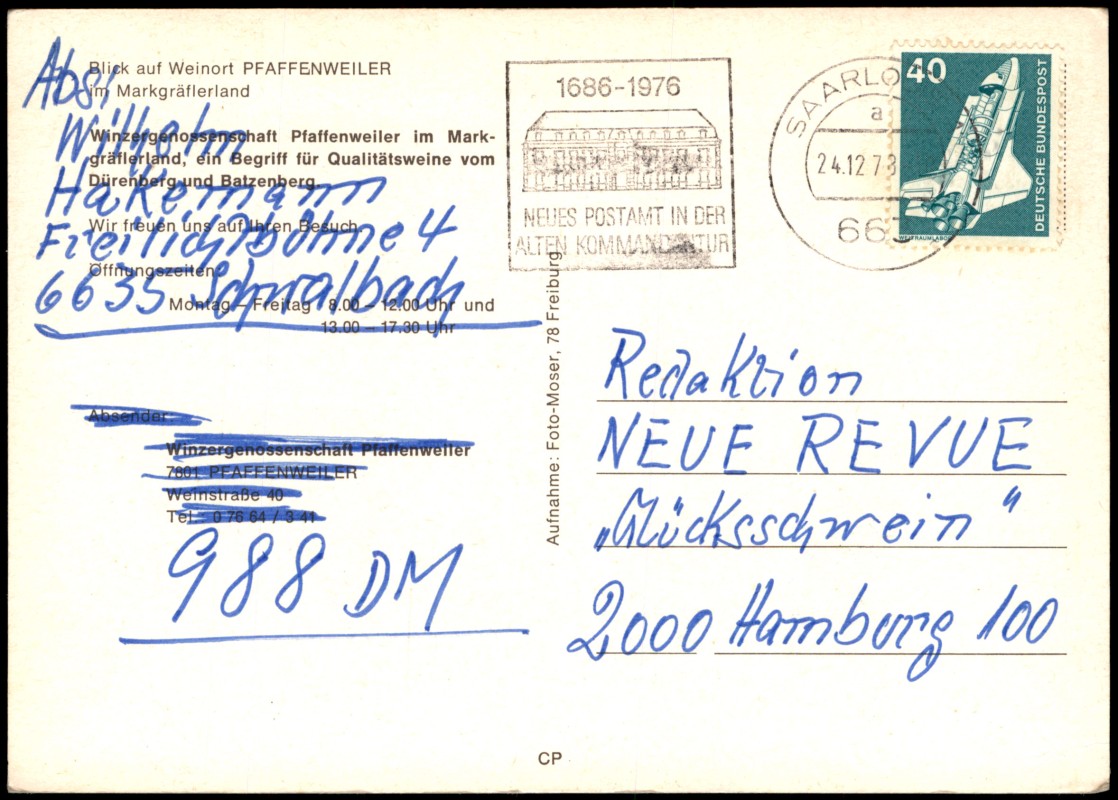 Blick auf Weinort PFAFFENWEILER
im Markgräflerland
Winzergenossenschaft Pfaffenweiler im Mark-
gräflerland, ein Begriff für Qualitätsweine vom
Dürenberg und Batzenberg.
Wir freuen uns auf Ihren Besuch.
Öffnungszeiten:
Montag – Freitag 8.00 – 12.00 Uhr und
13.00 – 17.30 Uhr
Abs.
Wilhelm
Hakemann
Freilichtbühne 4
6635 Schwalbach
Absender:
Winzergenossenschaft Pfaffenweiler
7801 PFAFFENWEILER
Weinstraße 40
Tel. 0 76 64 / 3 41
988 DM
Aufnahme: Foto-Moser, 78 Freiburg
CP
1686-1976
NEUES POSTAMT IN DER
ALTEN KOMMANDANTUR
SAARLO
a
24.12.78
663
40
DEUTSCHE BUNDESPOST
WELTRAUMLABOR
Redaktion
NEUE REVUE
„Glücksschwein"
2000 Hamburg 100